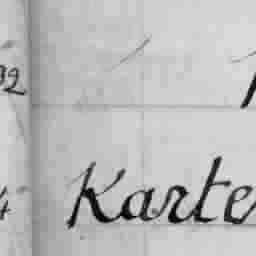 92
4 Karte